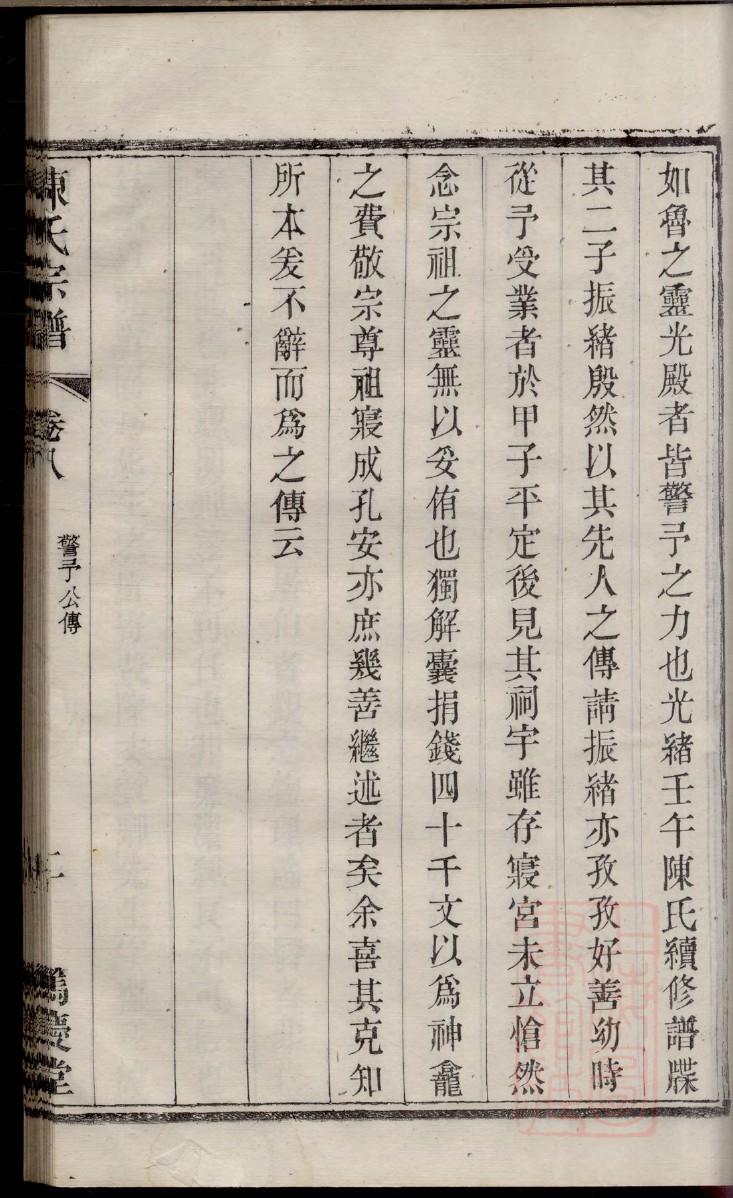 如魯之靈光殿者皆警予之力也光緒壬午陳氏續修譜牒
其二子振緒殷然以其先人之傳請振緒亦孜孜好善幼時
從予受業者於甲子平定後見其祠宇雖存寢宮未立愴然
念宗祖之靈無以妥侑也獨解囊捐錢四十千文以爲神龕
之費敬宗尊祖寢成孔安亦庶幾善繼述者矣余喜其克知
所本爰不辭而爲之傳云
陳氏宗譜
卷八
警予公傳
二
篤慶堂